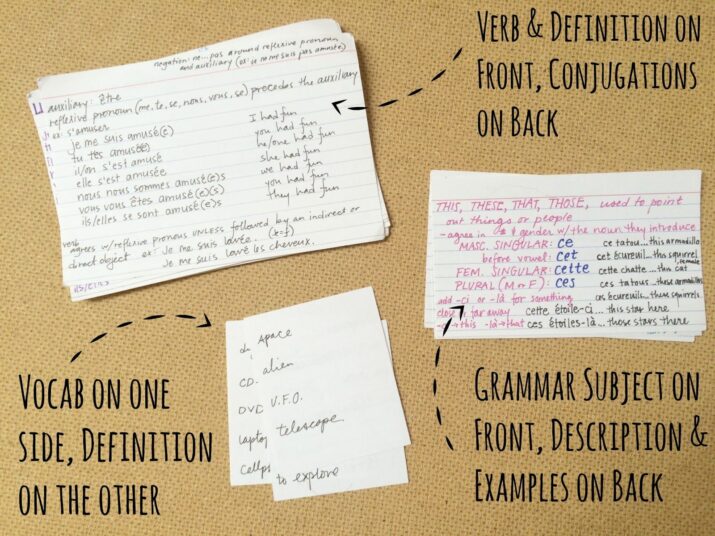 VERB & DEFINITION ON
FRONT, CONJUGATIONS
ON BACK
negation: ne...pas around reflexive pronoun
and auxiliary (ex: je ne me suis pas amusée)
auxiliary: être
reflexive pronoun (me, te, se, nous, vous, se) precedes the auxiliary
ex: s'amuser
je me suis amusé(e) I had fun
tu t'es amusé(e) you had fun
il/on s'est amusé he/one had fun
elle s'est amusée she had fun
nous nous sommes amusé(e)s we had fun
vous vous êtes amusé(e)(s) you had fun
ils/elles se sont amusé(e)s they had fun
verb
agrees w/reflexive pronoun UNLESS followed by an indirect or
direct object ex: Je me suis lavée.
Je me suis lavé les cheveux.
THIS, THESE, THAT, THOSE, used to point
out things or people
-agree in # & gender w/the noun they introduce
MASC. SINGULAR: ce ce tatou...this armadillo
before vowel: cet cet écureuil...this squirrel
FEM. SINGULAR: cette cette chatte...this female cat
PLURAL (M or F): ces ces tatous...these armadillos
add -ci or -là for something ces écureuils...these squirrels
close or far away cette étoile-ci...this star here
-ci→this -là→that ces étoiles-là...those stars there
space
CD. alien
DVD U.F.O.
laptop telescope
cellph to explore
VOCAB ON ONE
SIDE, DEFINITION
ON THE OTHER
GRAMMAR SUBJECT ON
FRONT, DESCRIPTION &
EXAMPLES ON BACK